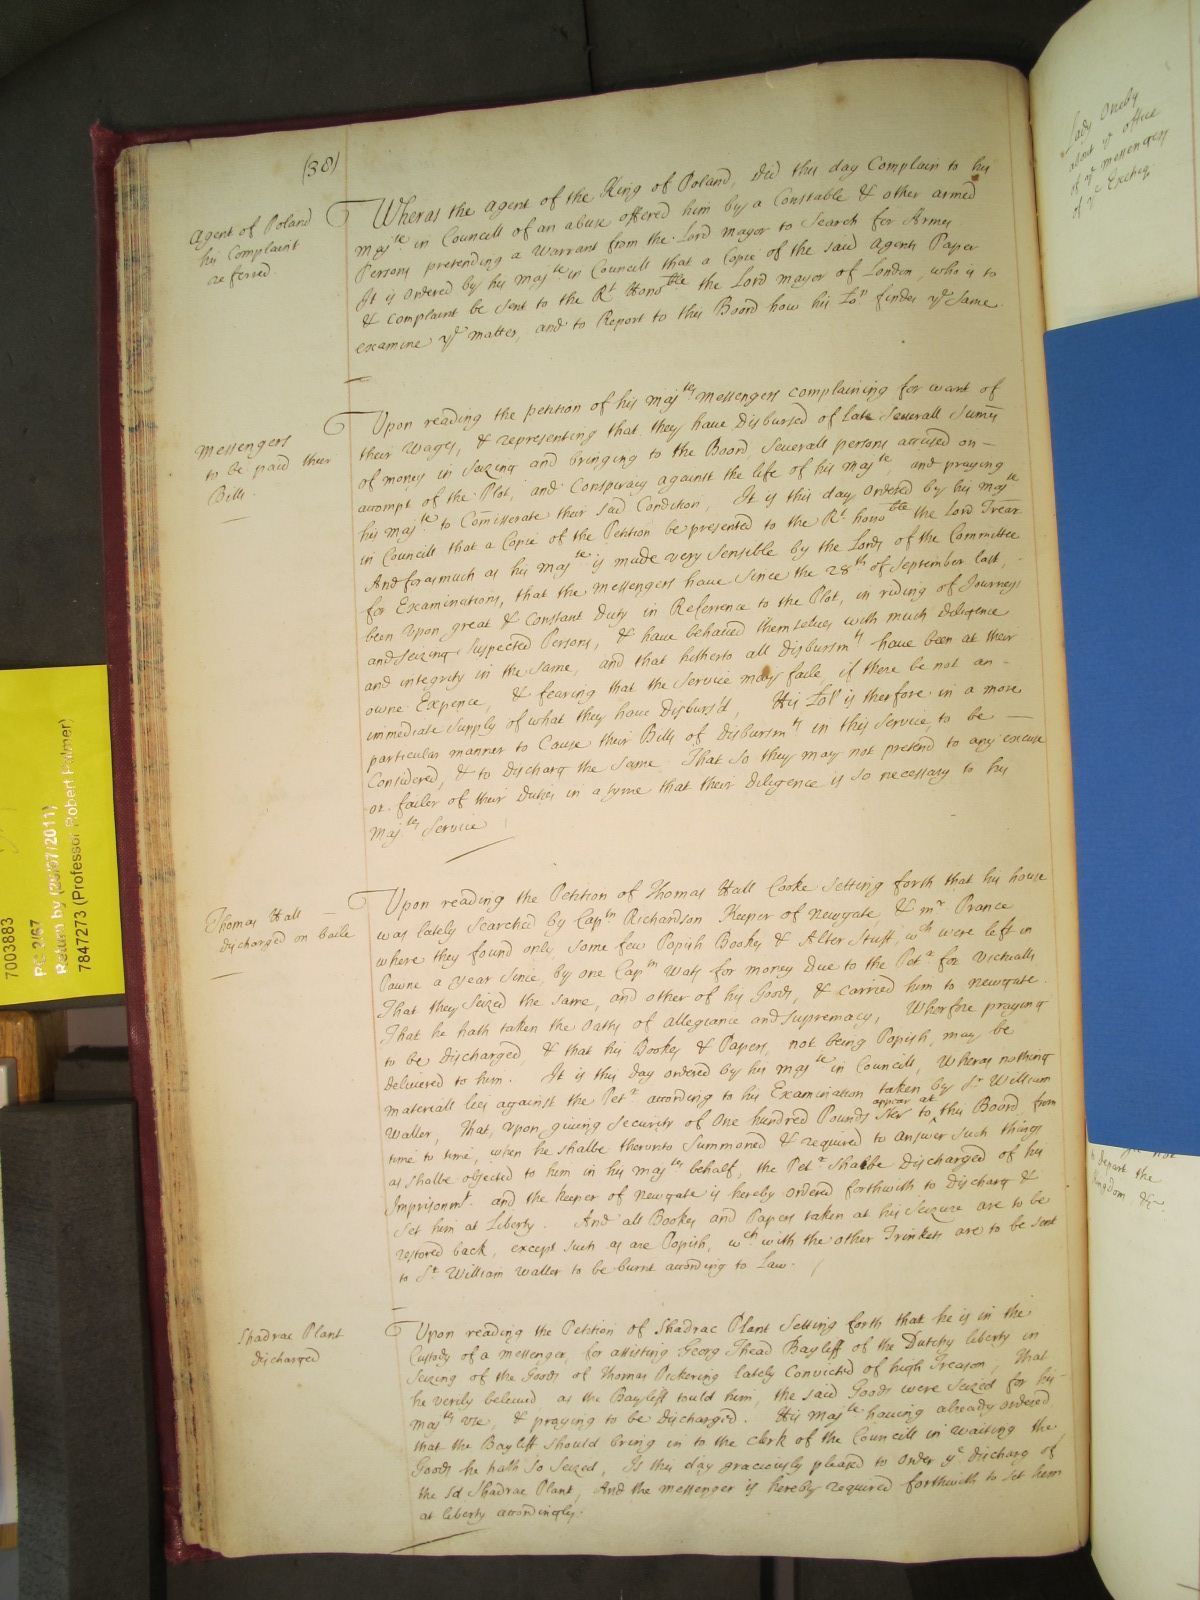 (38)
Agent of Poland
his Complaint
referred.
Wheras the Agent of the King of Poland, did this day Complain to his
Maj^te in Councill of an abuse offered him by a Constable & other armed
Persons pretending a Warrant from the Lord Mayor to Search for Armes
It is Ordered by his Maj^te in Councill that a Copie of the said Agents Paper
& complaint be sent to the R^t Hono^ble the Lord Mayor of London, who is to
examine y^e matter, and to Report to this Board how his Lo^p findes y^e same
Messengers
to be paid their
Bills.
Upon reading the petition of his Maj^tes Messengers complaining for want of
their Wages, & representing that they have Disbursed of late severall Summs
of money in Seizing and bringing to the Board, severall persons accused on
accompt of the Plot, and Conspiracy against the life of his Maj^te and praying
his Maj^te to Comiserate their sad Condition, It is this day Ordered by his Maj^te
in Councill that a Copie of the Petition be presented to the R^t hono^ble the Lord Trear
And forasmuch as his Maj^te is made very Sensible by the Lords of the Committee
for Examinations, that the Messengers have since the 28^th of September last,
been upon great & Constant Duty in Reference to the Plot, in riding of Journeys
and Seizing Suspected Persons, & have behaved themselves with much diligence
and integrity in the same, and that hitherto all disbursm^ts have been at their
owne Expence, & fearing that the Service may faile, if there be not an
immediate supply of what they have disburs'd, His Lo^p is therfore in a more
particular manner to Cause their Bills of disbursm^ts in this Service, to be
Considered, & to discharg the same, That so they may not pretend to any excuse
or failer of their Duties in a tyme that their diligence is so necessary to his
Maj^tes Service
Thomas Hall
discharged on baile
Upon reading the Petition of Thomas Hall Cooke setting forth that his house
was lately searched by Cap^tn Richardson Keeper of Newgate, & m^r Prance
where they found only some few Popish Bookes & Alter Stuff, w^ch were left in
Pawne a year since, by one Cap^tn Wats for money due to the Pet^r for Victualls
That they seized the same, and other of his Goods, & carried him to Newgate
That he hath taken the Oaths of Allegiance and Supremacy, Wherfore praying
to be discharged & that his Bookes & Papers, not being Popish, may be
delivered to him. It is this day ordered by his Maj^te in Councill, Wheras nothing
materiall lies against the Pet^r according to his Examination taken by S^r William
Waller, That, upon giving security of One hundred Pounds Ster to appear at this Board from
time to time, when he shalbe therunto Summoned & required to answer such things
as shalbe objected to him in his Maj^tes behalf, the Pet^r shalbe discharged of his
Imprisonm^t. and the keeper of Newgate is hereby ordered forthwith to discharg &
set him at Liberty. And all Bookes and Papers taken at his Seizure are to be
restored back, except such as are Popish, w^ch with the other Trinkets are to be sent
to S^r William Waller to be burnt according to Law.
Shadrac Plant
discharged
Upon reading the Petition of Shadrac Plant Setting forth that he is in the
Custody of a messenger, for assisting Georg Thead Bayliff of the Dutchy liberty in
Seizing of the Goods of Thomas Pickering lately Convicted of high Treason, That
he verily beleived, as the Bayliff tould him, the said Goods were seized for his
Maj^tes use, & praying to be discharged. His Maj^te having already ordered
that the Bayliff should bring in to the clerk of the Councill in waiting the
Goods he hath so seized, Is this day graciously pleased to order y^e discharg of
the s^d Shadrac Plant, And the messenger is hereby required forthwith to set him
at liberty accordingly.
Lady Oneby
about y^e office
of y^e messengers
of y^e Excheq^r
depart the
Kingdom, &c.
7003883
PC 2/67
Return by (26/07/2011)
7847273 (Professor Robert Palmer)